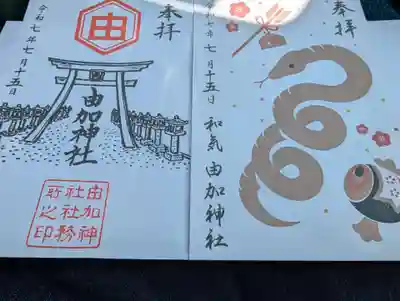 奉拝
由
令和七年七月十五日
由加神社
由加神
社社務
所之印
奉拝
七月十五日
和気 由加神社